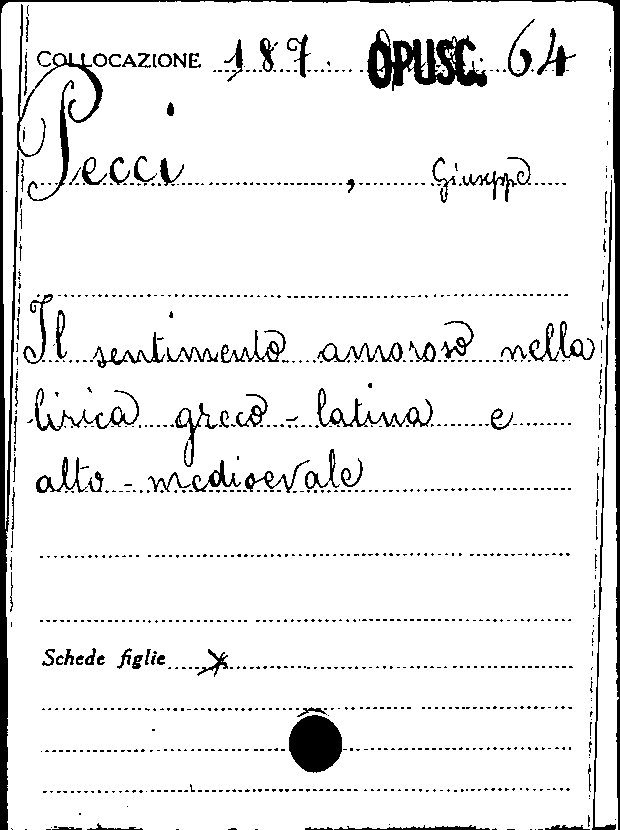 COLLOCAZIONE 187. OPUSC. 64
Pecci, Giuseppe
Il sentimento amoroso nella
lirica greco-latina e
alto-medioevale
Schede figlie